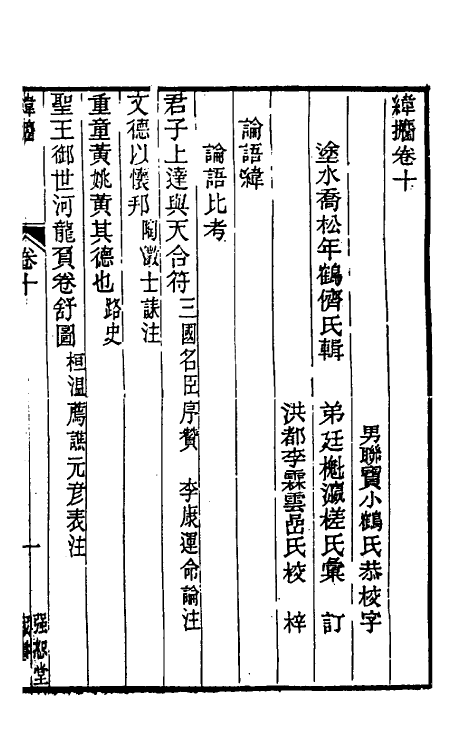 緯攟卷十
男聯寶小鶴氏恭校字
塗水喬松年鶴儕氏輯 弟廷櫆瀛槎氏彙 訂
洪都李霖雲嵒氏校 梓
論語緯
論語比考
君子上達與天合符 三國名臣序贊 李康運命論注
文德以懷邦 陶徵士誄注
重童黃姚黃其德也 路史
聖王御世河龍負卷舒圖 桓溫薦譙元彥表注
緯攟
卷十
一
强恕堂